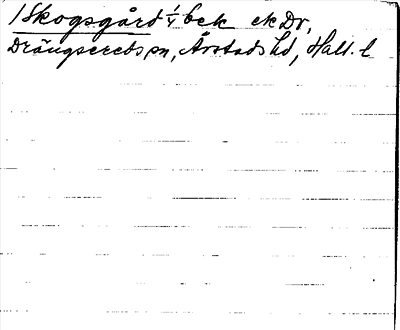 1 Skogsgård 1/4 bek ek Dr,
Drängsereds sn, Årstads hd, Hall. l